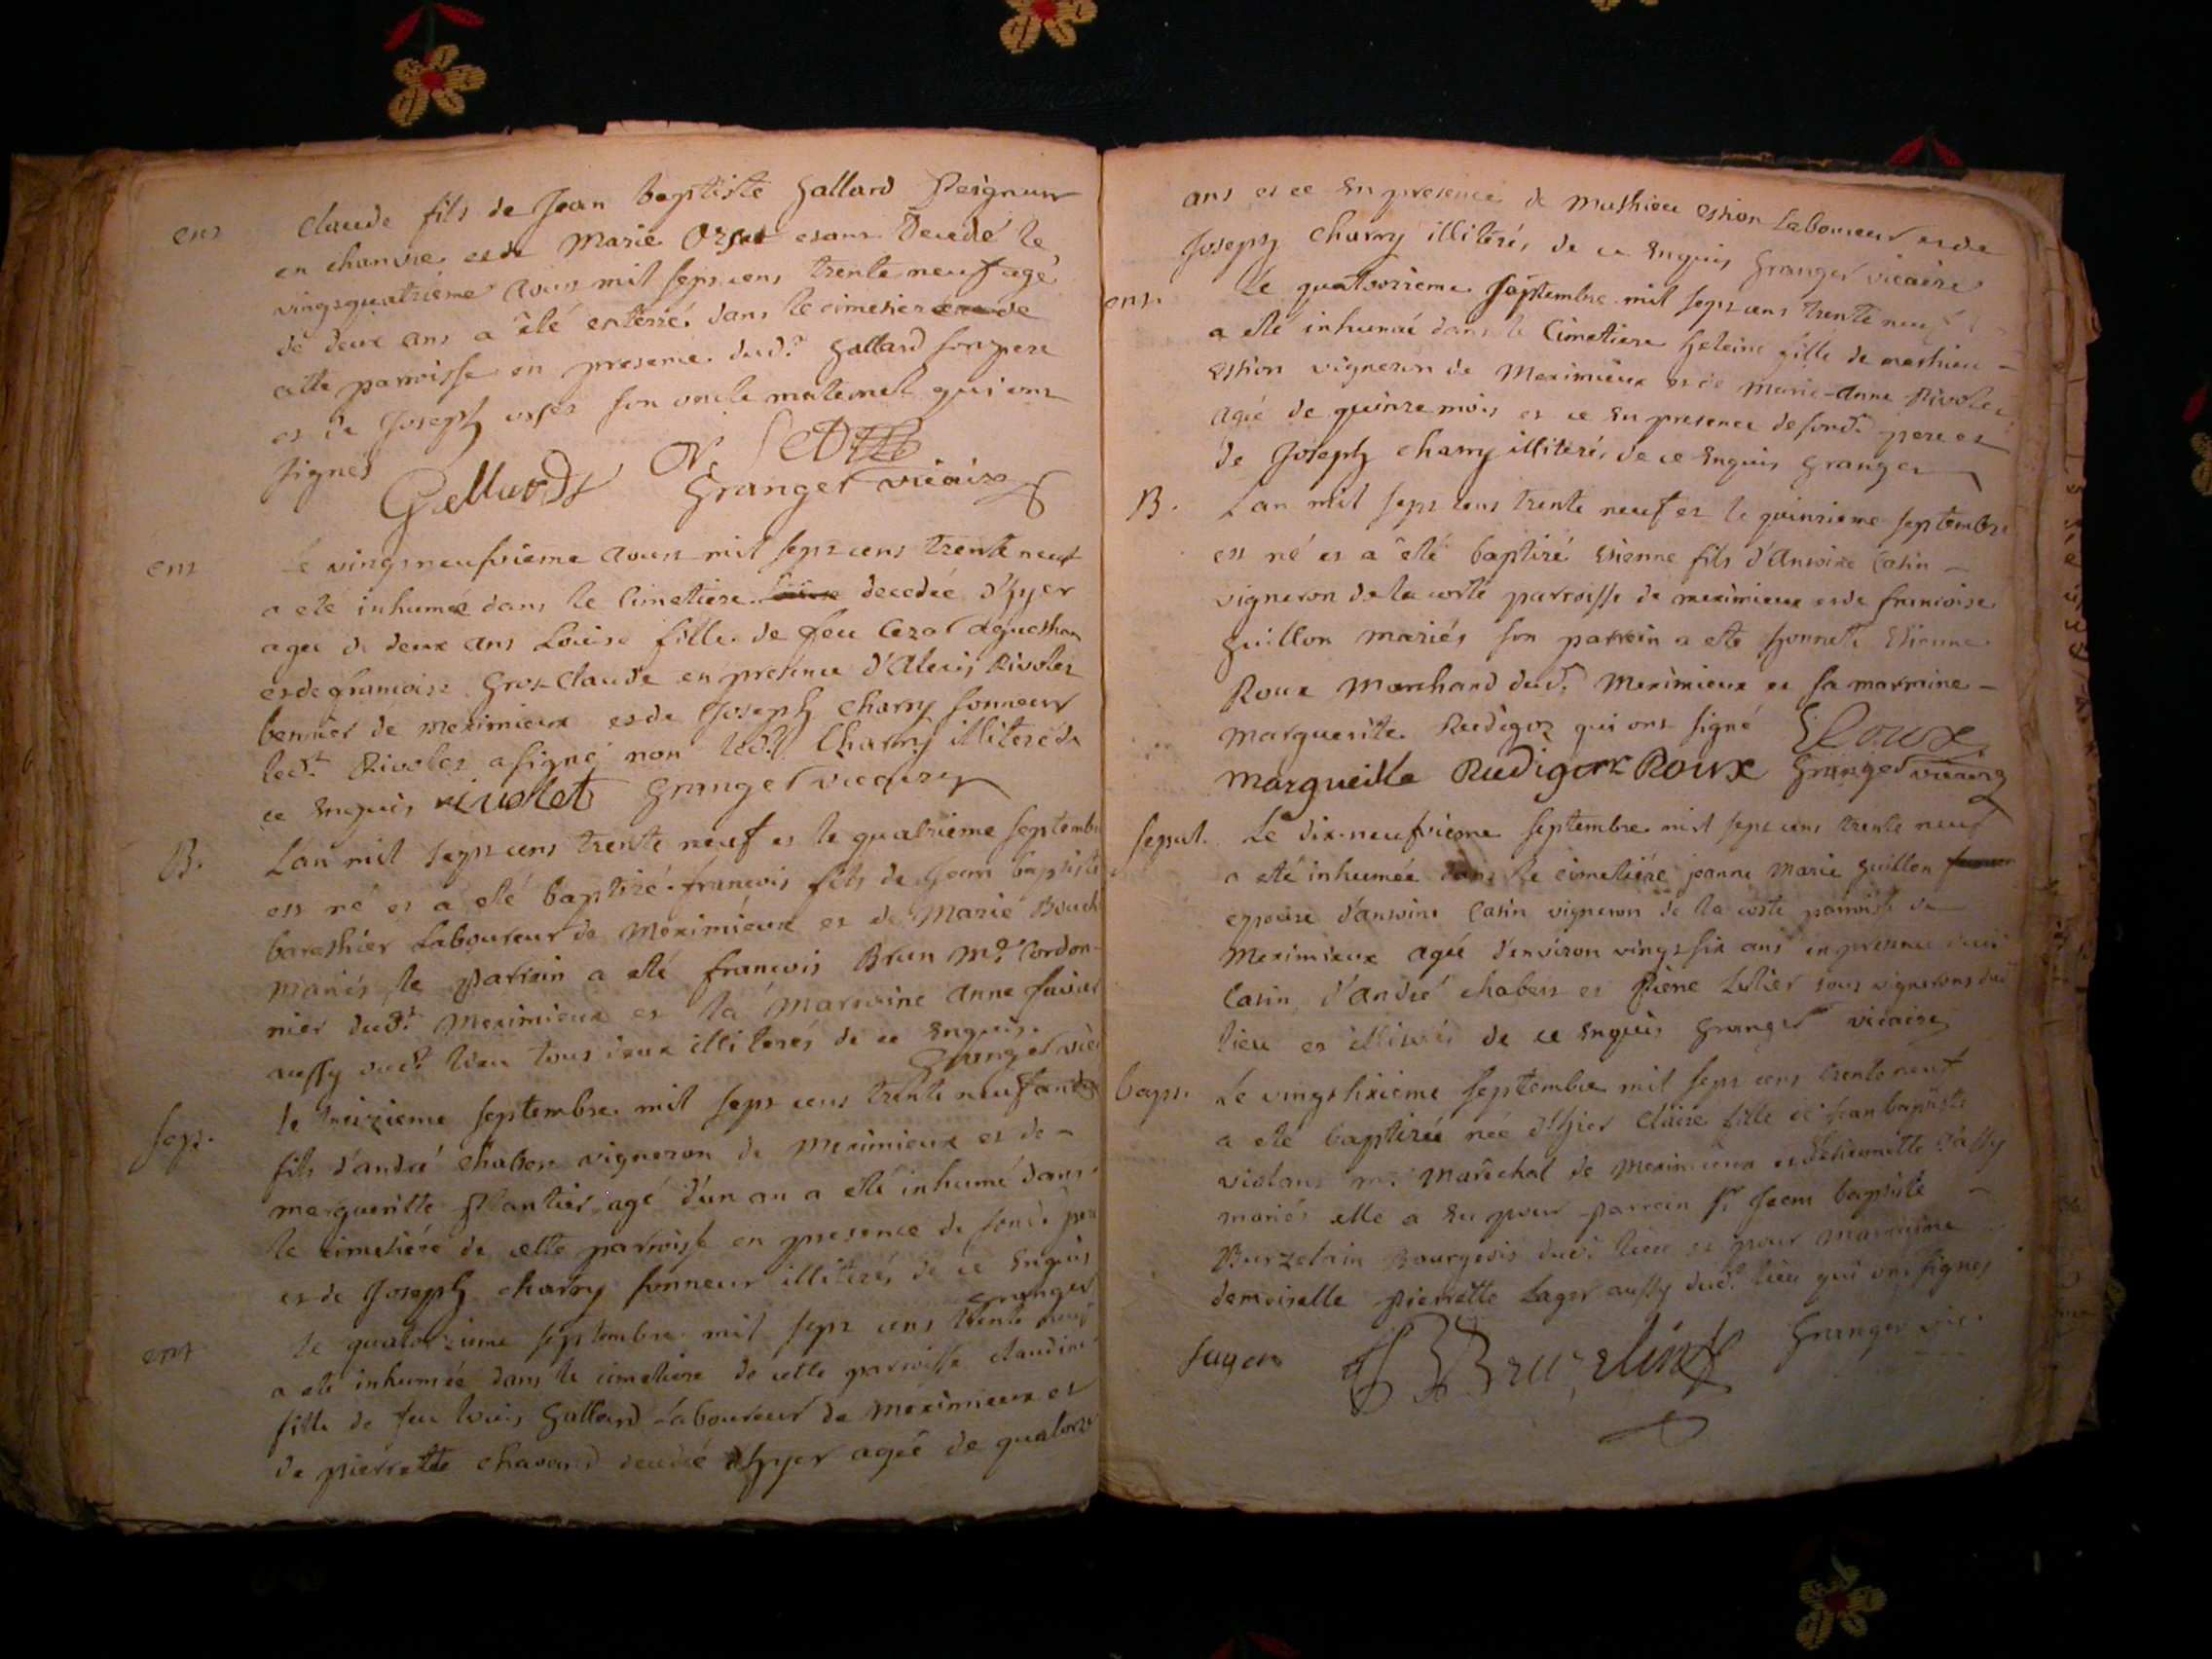 ent
Claude fils de Jean baptiste Gallard Peigneur
en chanvre et de Marie Orset estant decedé le
vingtquatrieme aoust mil sept cent trente neuf agé
de deux ans a été enterré dans le cimetier de
cette parroisse en presence dud.t Gallard son pere
et de Joseph orset son oncle maternel qui ont
signés
Gallard Orset
Granger vicaire
ent
Le vingtneufvieme aoust mil sept cent trente neuf
a eté inhumée dans le Cimetiere decedée d'hyer
agée de deux ans Louise fille de feu
et de francoise Gros Claude en presence d'Alexis Rivolet
bennier de meximieux et de Joseph charvy sonneur
led.t Rivolet a signé non led.t Charvy illiteré de
ce Enquis Rivolet Granger vicaire
B.
L'an mil sept cent trente neuf et le quatrieme septembre
est né et a eté baptizé francois fils de Jean baptiste
barethier Laboureur de Meximieux et de Marie
mariés le parrein a eté francois Brun M.e Cordon-
nier dud.t Meximieux et la marreine anne
aussy dud.t lieu tous deux illiterés de ce Enquis
Granger vic
sep.
le treizieme septembre mil sept cent trente neuf
fils d'andré chabert vigneron de Meximieux et de -
margueritte Plantier agé d'un an a eté inhumé dans
le cimetiére de cette parroisse en presence de sond. pere
et de Joseph charvy sonneur illiterés de ce Enquis
Granger
ent
le quatorzieme septembre mil sept cent trente neuf
a eté inhumée dans le cimetiere de cette parroisse claudine
fille de feu louis Gallard Laboureur de Meximieux et
de pierrette chavand decedée d'hyer agée de quatorze
ans et ce En presence de Mathieu estion Laboureur et de
Joseph charvy illiterés de ce Enquis Granger vicaire
ent.
Le quatorzieme septembre mil sept cent trente neuf
a eté inhumée dans le Cimetiere heleine fille de mathieu -
estion vigneron de Meximieux et de Marie-Anne Rivolet
agée de quinze mois et ce En presence de sond.t pere et
de Joseph charvy illiterés de ce Enquis Granger
B.
L'an mil sept cent trente neuf et le quinzieme septembre
est né et a eté baptizé Etienne fils d'Antoine Casin -
vigneron de la coste parroisse de meximieux et de francoise
Guillon mariés son parrein a eté honnete Etienne
Roux Marchand dud.t Meximieux et sa marraine -
Marguerite Rudigoz qui ont signé E Roux
Margueitte Rudigoz Roux Granger vicaire
sepul.
Le dix-neufvieme septembre mil sept cent trente neuf
a eté inhumée dans le cimetiére jeanne Marie Guillon
epouse d'antoine Casin vigneron de la coste parroisse de
Meximieux agée d'environ vingt six ans en presence dud
Casin, d'andré chabert et Pierre tous vignerons dud
lieu et illiterés de ce Enquis Granger vicaire
bapt.
Le vingt sixieme septembre mil sept cent trente neuf
a eté baptizée née d'hier Claire fille de Jean baptiste
violand m.e Maréchal de Meximieux et d'Etiennette
mariés elle a Eu pour parrein S.r Jean baptiste -
Burzelain Bourgeois dud.t lieu et pour marraine
demoiselle pierrette Lager aussy dud.t lieu qui ont signés
Lager Granger vic.